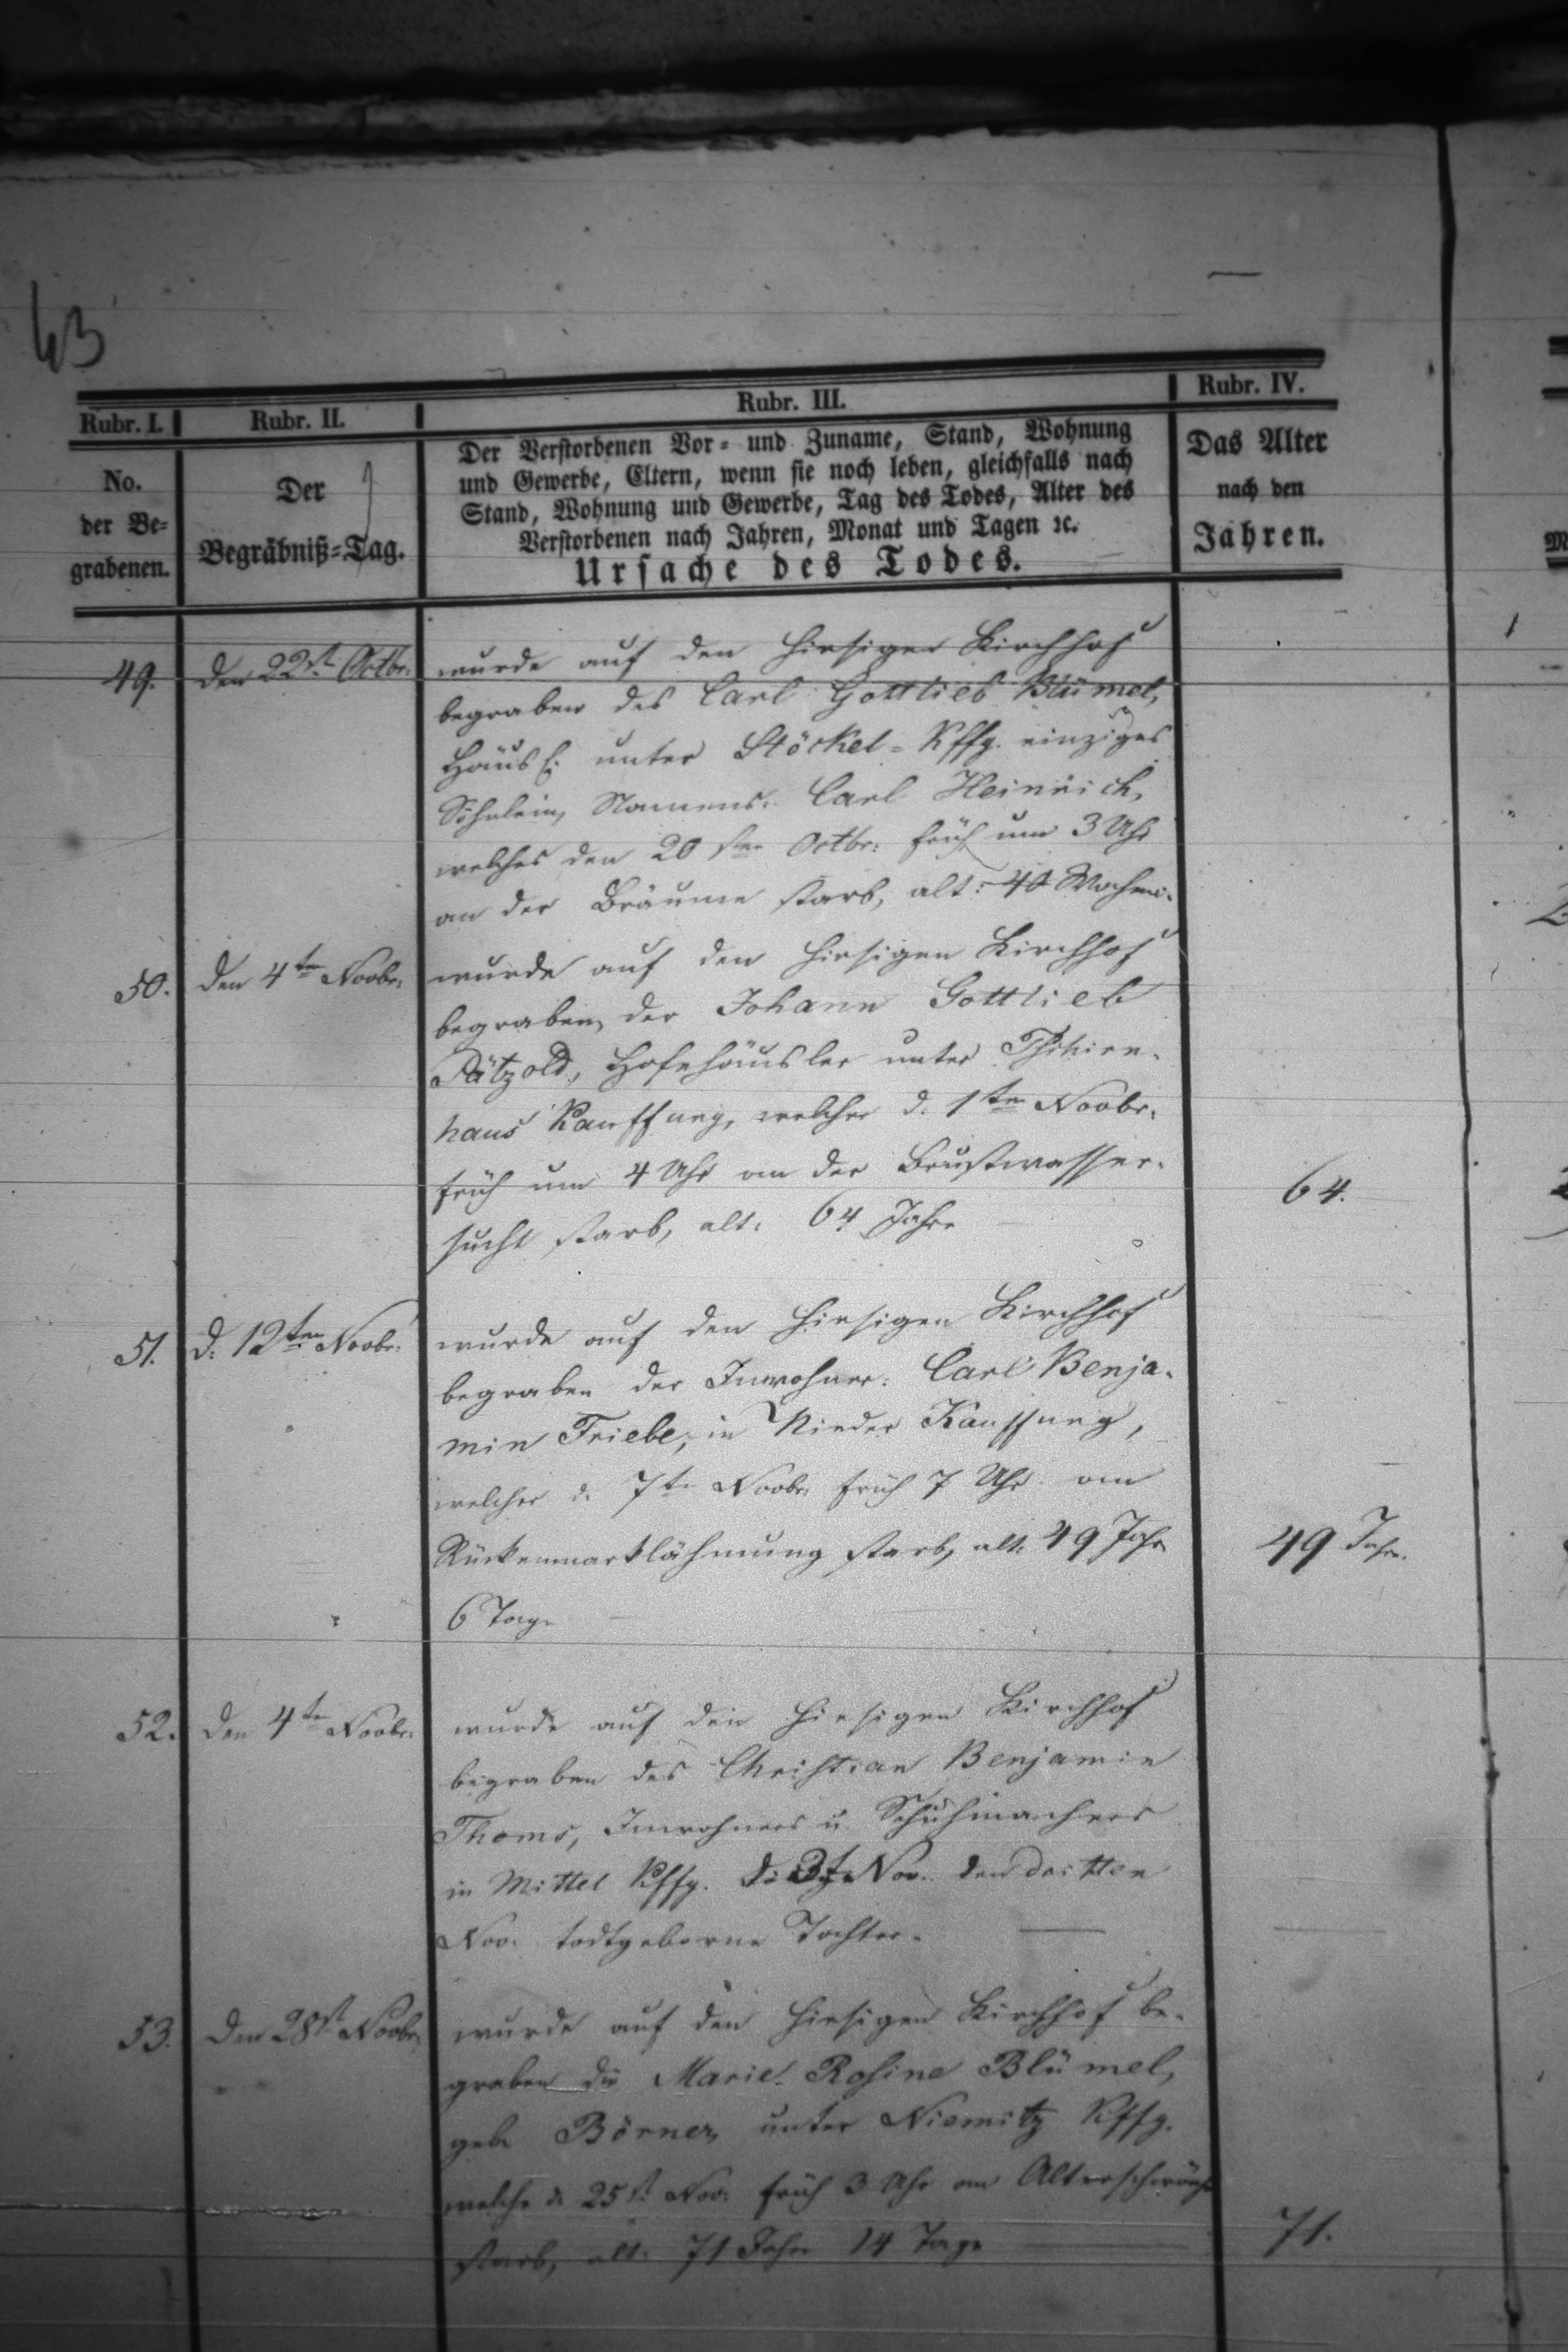 43
Rubr. I. Rubr. II. Rubr. III. Rubr. IV.
No.
der Be-
grabenen.
Der
Begräbniß-Tag.
Der Verstorbenen Vor- und Zuname, Stand, Wohnung
und Gewerbe, Eltern, wenn sie noch leben, gleichfalls nach
Stand, Wohnung und Gewerbe, Tag des Todes, Alter des
Verstorbenen nach Jahren, Monat und Tagen ꝛc.
Ursache des Todes.
Das Alter
nach den
Jahren.
49. den 22st. Octbr. wurde auf den hiesigen Kirchhof
begraben des Carl Gottlieb Blümel,
Häusl. unter Stöckel-Kffg. einziges
Söhnlein, Namens: Carl Heinrich,
welches den 20sten Octbr. früh um 3 Uhr
an der Bräune starb, alt: 40 Wochen.
50. den 4ten Novbr. wurde auf den hiesigen Kirchhof
begraben, der Johann Gottlieb
Pätzold, Hofehäusler unter
haus Kauffung, welcher d. 1ten Novbr.
früh um 4 Uhr an der Brustwasser-
sucht starb, alt: 64 Jahre 64.
51. d. 12ten Novbr. wurde auf den hiesigen Kirchhof
begraben der Inwohner: Carl Benja-
min Friebe, in Nieder Kauffung,
welcher d. 7te Novbr. früh 7 Uhr am
Rückenmarklähmung starb, alt: 49 Jahr 49 Jahr.
6 Tage
52. den 4ten Novbr. wurde auf den hiesigen Kirchhof
begraben des Christian Benjamin
Thoms, Inwohners u. Schuhmachers
in Mittel Kffg. Nov. den dritten
Nov. todtgeborne Tochter.
53. den 28st Novbr. wurde auf den hiesigen Kirchhof be-
graben die Marie Rosine Blümel,
geb. Börner, unter Niemitz Kffg.
welche d. 25st. Nov. früh 3 Uhr an
starb, alt: 71 Jahr 14 Tage 71.